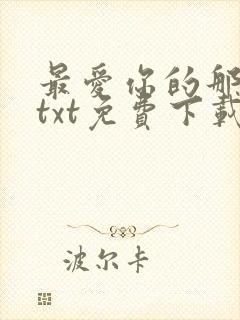 最愛你的那
txt免費下載
波尔卡